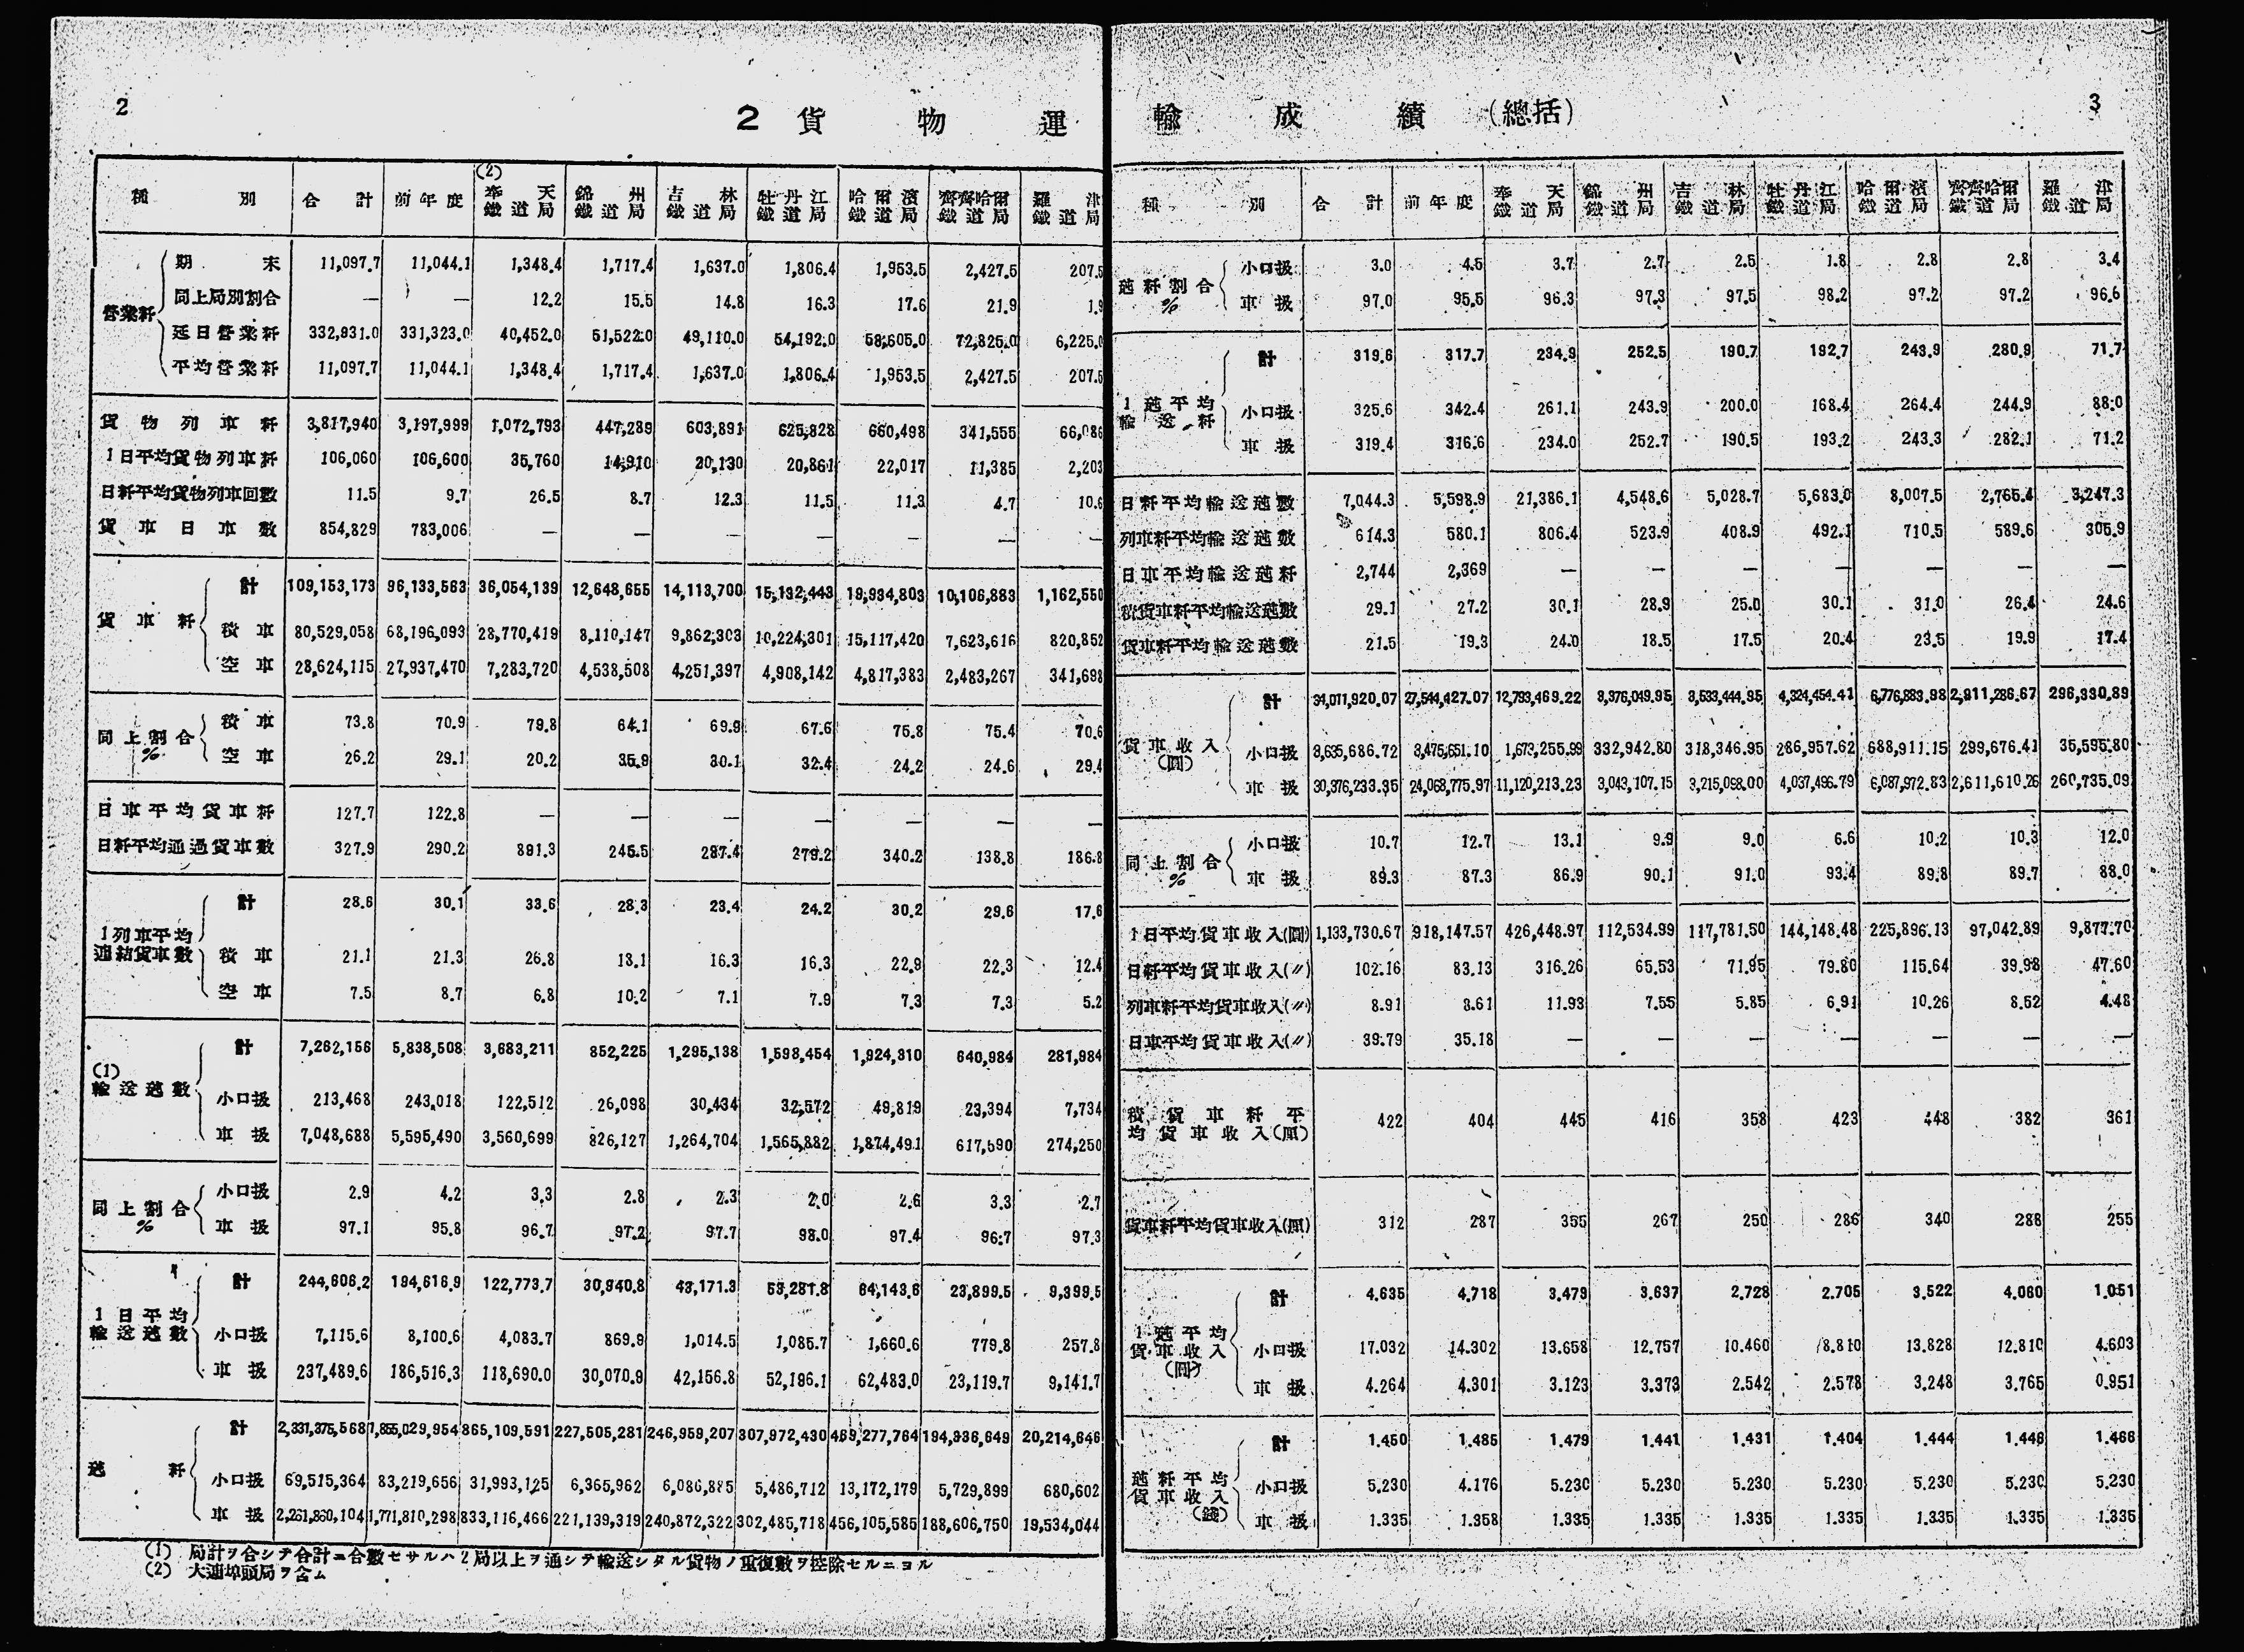 2
2 貨 物 運
種 別 合 計 前年度 (2)奉天鐵道局 錦州鐵道局 吉林鐵道局 牡丹江鐵道局 哈爾濱鐵道局 齊齊哈爾鐵道局 羅津鐵道局
營業粁 期 末 11,097.7 11,044.1 1,348.4 1,717.4 1,637.0 1,806.4 1,953.5 2,427.5 207.5
同上局別割合 — — 12.2 15.5 14.8 16.3 17.6 21.9 1.9
延日營業粁 332,931.0 331,323.0 40,452.0 51,522.0 49,110.0 54,192.0 58,605.0 72,825.0 6,225.0
平均營業粁 11,097.7 11,044.1 1,348.4 1,717.4 1,637.0 1,806.4 1,953.5 2,427.5 207.5
貨物列車粁 3,817,940 3,197,999 1,072,793 447,289 603,891 625,828 660,498 341,555 66,086
1日平均貨物列車粁 106,060 106,600 35,760 14,910 20,130 20,861 22,017 11,385 2,203
日粁平均貨物列車回數 11.5 9.7 26.5 8.7 12.3 11.5 11.3 4.7 10.6
貨車日車數 854,829 783,006 — — — — — — —
貨車粁 計 109,153,173 96,133,563 36,054,139 12,648,655 14,113,700 15,132,443 19,934,803 10,106,883 1,162,550
積車 80,529,058 68,196,093 28,770,419 8,110,147 9,862,303 10,224,301 15,117,420 7,623,616 820,852
空車 28,624,115 27,937,470 7,283,720 4,538,508 4,251,397 4,908,142 4,817,383 2,483,267 341,698
同上割合% 積車 73.8 70.9 79.8 64.1 69.9 67.6 75.8 75.4 70.6
空車 26.2 29.1 20.2 35.9 30.1 32.4 24.2 24.6 29.4
日車平均貨車粁 127.7 122.8 — — — — — — —
日粁平均通過貨車數 327.9 290.2 891.3 245.5 287.4 279.2 340.2 138.8 186.8
1列車平均連結貨車數 計 28.6 30.1 33.6 28.3 23.4 24.2 30.2 29.6 17.6
積車 21.1 21.3 26.8 18.1 16.3 16.3 22.9 22.3 12.4
空車 7.5 8.7 6.8 10.2 7.1 7.9 7.3 7.3 5.2
(1)輸送瓲數 計 7,262,156 5,838,508 3,683,211 852,225 1,295,138 1,598,454 1,924,310 640,984 281,984
小口扱 213,468 243,018 122,512 26,098 30,434 32,572 49,819 23,394 7,734
車扱 7,048,688 5,595,490 3,560,699 826,127 1,264,704 1,565,882 1,874,491 617,590 274,250
同上割合% 小口扱 2.9 4.2 3.3 2.8 2.3 2.0 2.6 3.3 2.7
車扱 97.1 95.8 96.7 97.2 97.7 98.0 97.4 96.7 97.3
1日平均輸送瓲數 計 244,606.2 194,616.9 122,773.7 30,940.8 43,171.3 53,281.8 64,143.6 23,899.5 9,399.5
小口扱 7,115.6 8,100.6 4,083.7 869.9 1,014.5 1,085.7 1,660.6 779.8 257.8
車扱 237,489.6 186,516.3 118,690.0 30,070.9 42,156.8 52,196.1 62,483.0 23,119.7 9,141.7
瓲粁 計 2,331,375,568 1,855,029,954 865,109,591 227,505,281 246,959,207 307,972,430 469,277,764 194,336,649 20,214,646
小口扱 69,515,364 83,219,656 31,993,125 6,365,962 6,086,885 5,486,712 13,172,179 5,729,899 680,602
車扱 2,261,860,104 1,771,810,298 833,116,466 221,139,319 240,872,322 302,485,718 456,105,585 188,606,750 19,534,044
(1) 局計ヲ合シテ合計ニ合致セサルハ2局以上ヲ通シテ輸送シタル貨物ノ重復數ヲ控除セルニヨル
(2) 大連埠頭局ヲ含ム
輸 成 績 (總括)
3
種 別 合 計 前年度 奉天鐵道局 錦州鐵道局 吉林鐵道局 牡丹江鐵道局 哈爾濱鐵道局 齊齊哈爾鐵道局 羅津鐵道局
瓲粁割合% 小口扱 3.0 4.5 3.7 2.7 2.5 1.8 2.8 2.8 3.4
車扱 97.0 95.5 96.3 97.3 97.5 98.2 97.2 97.2 96.6
1瓲平均輸送粁 計 319.6 317.7 234.9 252.5 190.7 192.7 243.9 280.9 71.7
小口扱 325.6 342.4 261.1 243.9 200.0 168.4 264.4 244.9 88.0
車扱 319.4 316.6 234.0 252.7 190.5 193.2 243.3 282.1 71.2
日粁平均輸送瓲數 7,044.3 5,598.9 21,386.1 4,548.6 5,028.7 5,683.0 8,007.5 2,765.4 3,247.3
列車粁平均輸送瓲數 614.3 580.1 806.4 523.9 408.9 492.1 710.5 589.6 305.9
日車平均輸送瓲粁 2,744 2,369 — — — — — — —
積貨車粁平均輸送瓲數 29.1 27.2 30.1 28.9 25.0 30.1 31.0 26.4 24.6
貨車粁平均輸送瓲數 21.5 19.3 24.0 18.5 17.5 20.4 23.5 19.9 17.4
貨車收入(圓) 計 34,011,920.07 27,544,427.07 12,793,469.22 3,376,049.95 3,533,444.95 4,324,454.41 6,776,883.98 2,911,286.67 296,330.89
小口扱 3,635,686.72 3,475,651.10 1,673,255.99 332,942.80 318,346.95 286,957.62 688,911.15 299,676.41 35,595.80
車扱 30,376,233.35 24,068,775.97 11,120,213.23 3,043,107.15 3,215,098.00 4,037,496.79 6,087,972.83 2,611,610.26 260,735.09
同上割合% 小口扱 10.7 12.7 13.1 9.9 9.0 6.6 10.2 10.3 12.0
車扱 89.3 87.3 86.9 90.1 91.0 93.4 89.8 89.7 88.0
1日平均貨車收入(圓) 1,133,730.67 918,147.57 426,448.97 112,534.99 117,781.50 144,148.48 225,896.13 97,042.89 9,877.70
日粁平均貨車收入(〃) 102.16 83.13 316.26 65.53 71.95 79.80 115.64 39.98 47.60
列車粁平均貨車收入(〃) 8.91 8.61 11.93 7.55 5.85 6.91 10.26 8.52 4.48
日車平均貨車收入(〃) 39.79 35.18 — — — — — — —
積貨車粁平均貨車收入(厘) 422 404 445 416 358 423 448 382 361
貨車粁平均貨車收入(厘) 312 287 355 267 250 286 340 288 255
1瓲平均貨車收入(圓) 計 4.635 4.718 3.479 3.637 2.728 2.705 3.522 4.080 1.051
小口扱 17.032 14.302 13.658 12.757 10.460 8.810 13.828 12.810 4.603
車扱 4.264 4.301 3.123 3.373 2.542 2.578 3.248 3.765 0.951
瓲粁平均貨車收入(錢) 計 1.450 1.485 1.479 1.441 1.431 1.404 1.444 1.448 1.466
小口扱 5.230 4.176 5.230 5.230 5.230 5.230 5.230 5.230 5.230
車扱 1.335 1.358 1.335 1.335 1.335 1.335 1.335 1.335 1.335